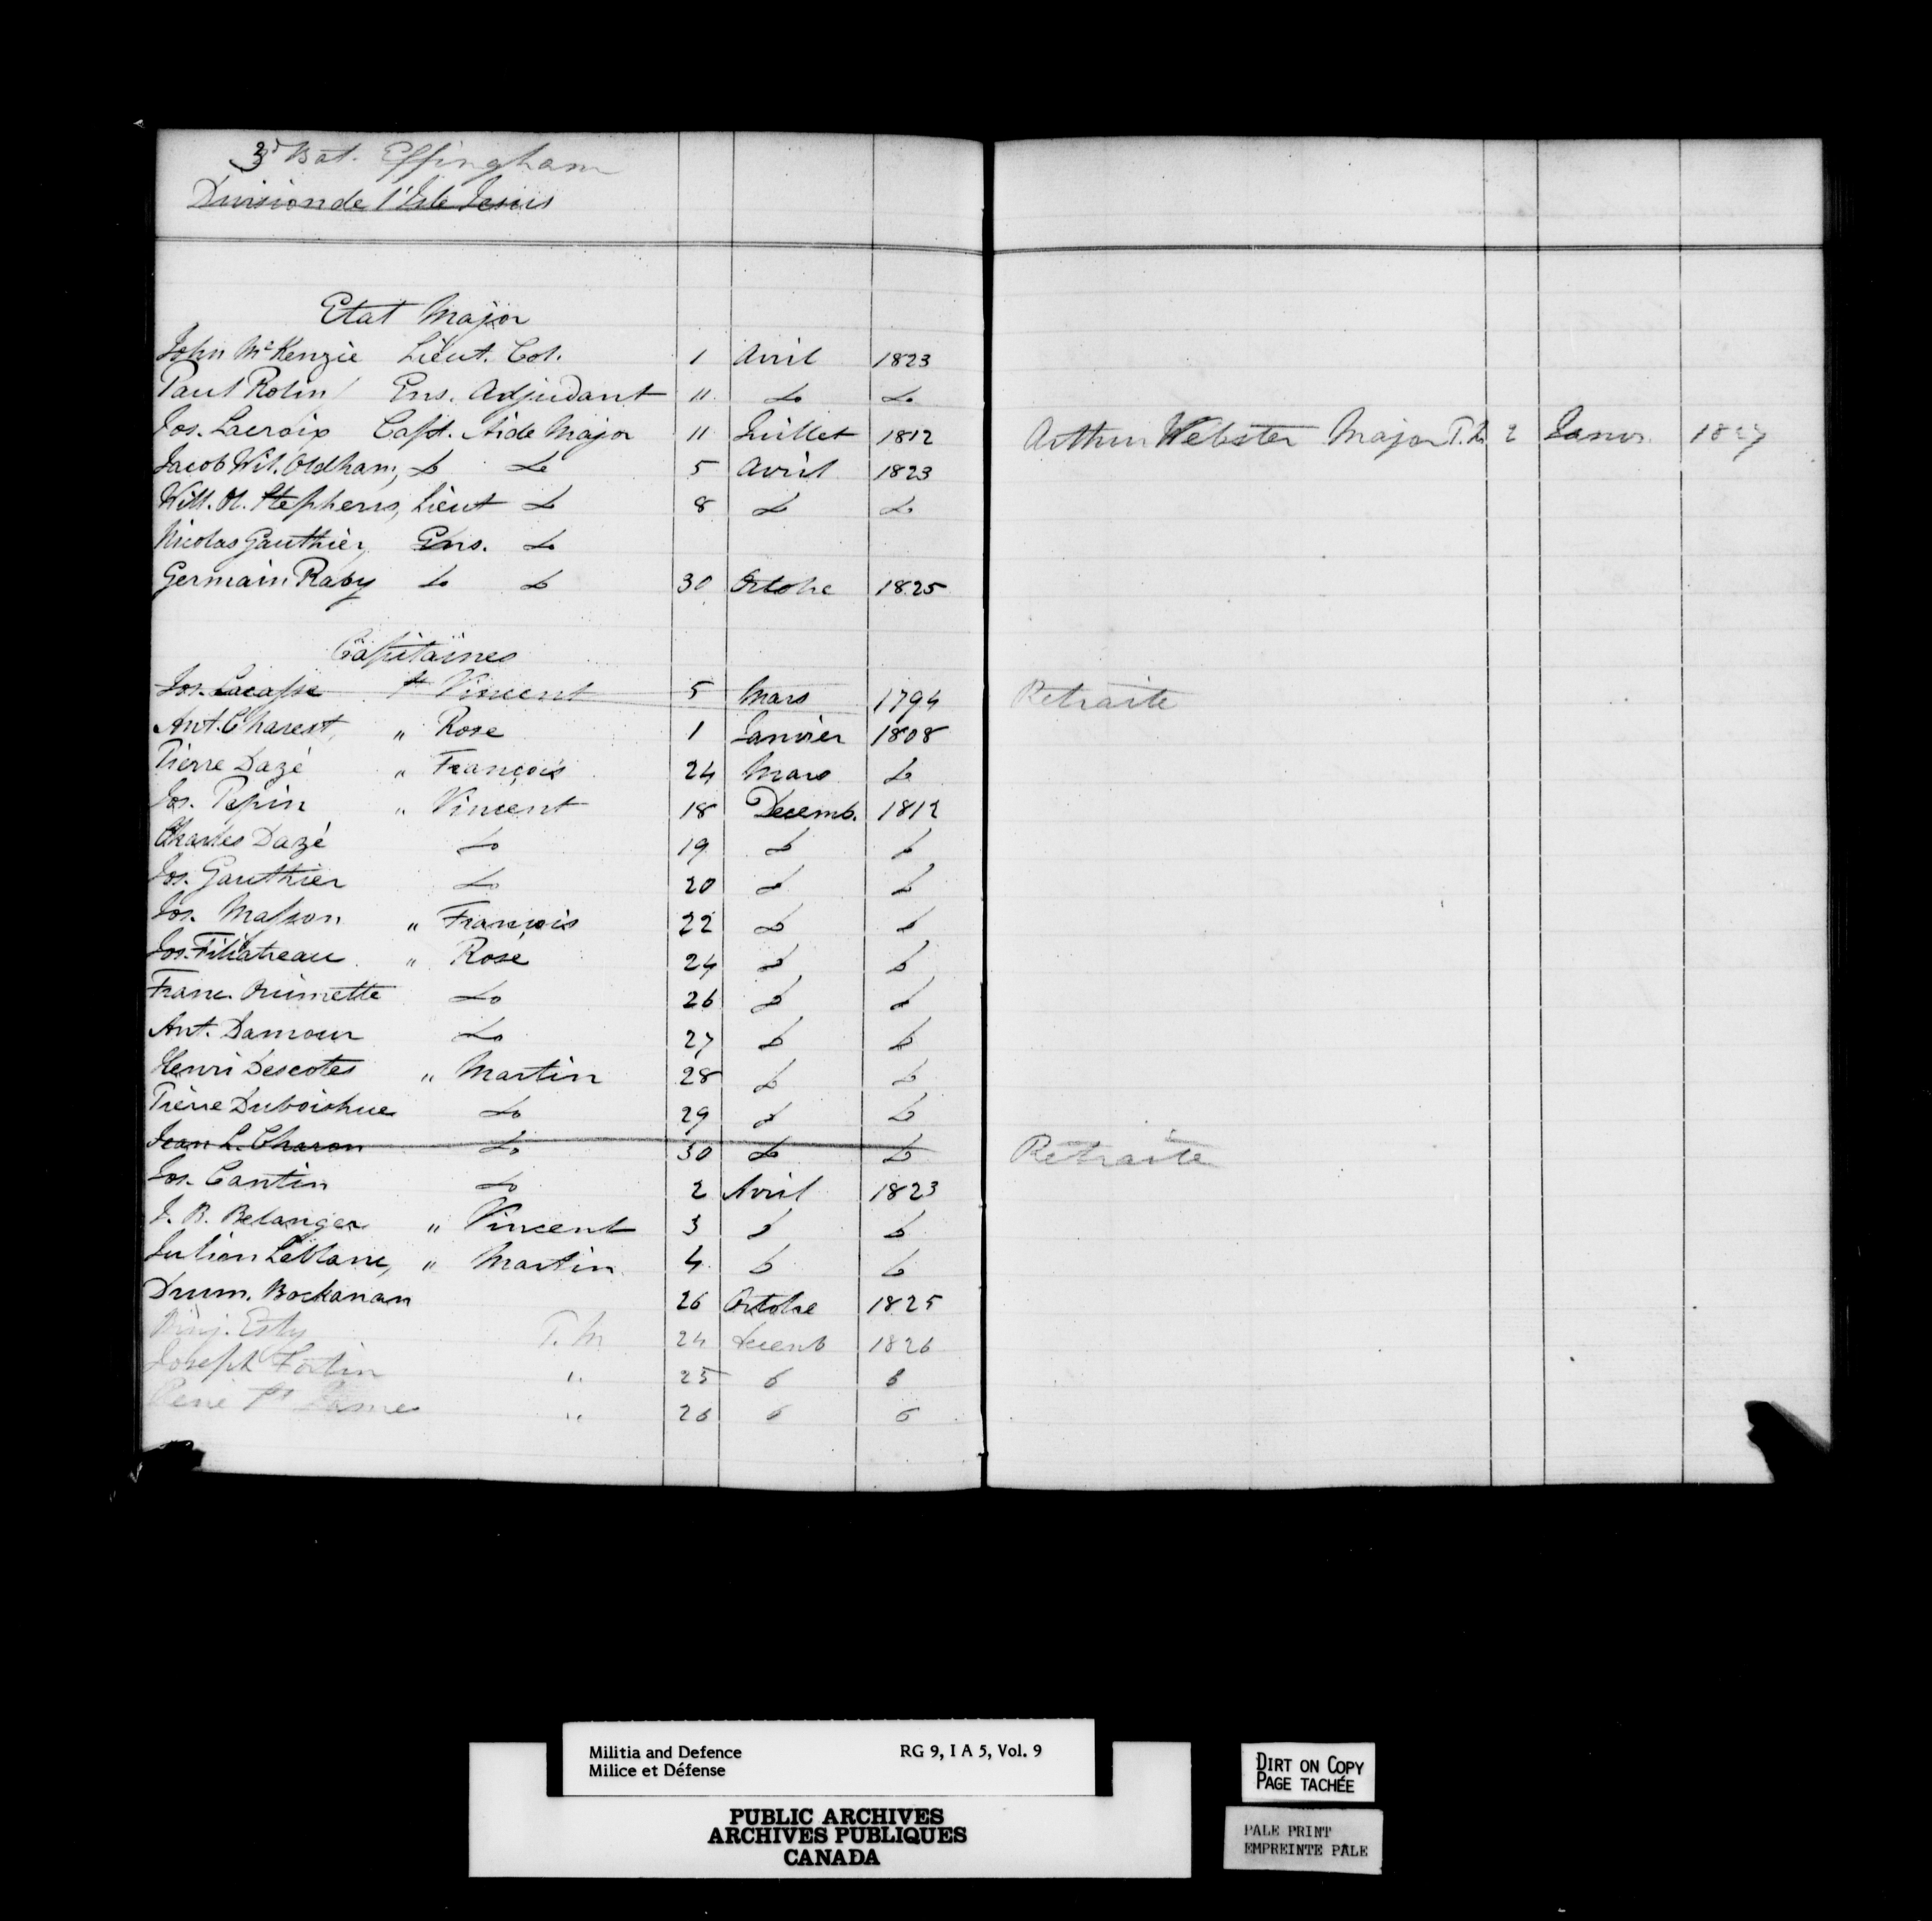 3d Bat. Effingham
Division de l'Isle Jesus
Etat Major
John McKenzie Lieut. Col. 1 Avril 1823
Paul Rolin Ens. Adjudant 11 Do Do
Jos. Lacroix Capt. Aide Major 11 Juillet 1812 Arthur Webster Major 2 Janvr. 1827
Jacob Wil. Oldham, Do Do 5 Avril 1823
Will. Stephens, Lieut Do 8 Do Do
Nicolas Gauthier, Ens. Do
Germain Raby Do Do 30 Octobre 1825
Capitaines
Jos. Lacasse St Vincent 5 Mars 1794 Retraite
Ant. Charest, " Rose 1 Janvier 1808
Pierre Dazé " François 24 Mars Do
Jos. Pepin " Vincent 18 Decemb. 1812
Charles Dazé Do 19 Do Do
Jos. Gauthier Do 20 Do Do
Jos. Masson " François 22 Do Do
Jos. Filiatreau " Rose 24 Do Do
Franc. Ouimette Do 26 Do Do
Ant. Damour Do 27 Do Do
Henri Descotes " Martin 28 Do Do
Pierre Duboishue Do 29 Do Do
Jean L. Charon Do 30 Do Do Retraite
Jos. Cantin Do 2 Avril 1823
J. B. Belanger " Vincent 3 Do Do
Julien Leblanc, " Martin 4 Do Do
Drum. Bockanan 26 Octobre 1825
T. M 24 Decemb 1826
Joseph Fortin " 25 Do Do
René St James " 26 Do Do
Militia and Defence RG 9, I A 5, Vol. 9
Milice et Défense
PUBLIC ARCHIVES
ARCHIVES PUBLIQUES
CANADA
DIRT ON COPY
PAGE TACHÉE
PALE PRINT
EMPREINTE PALE